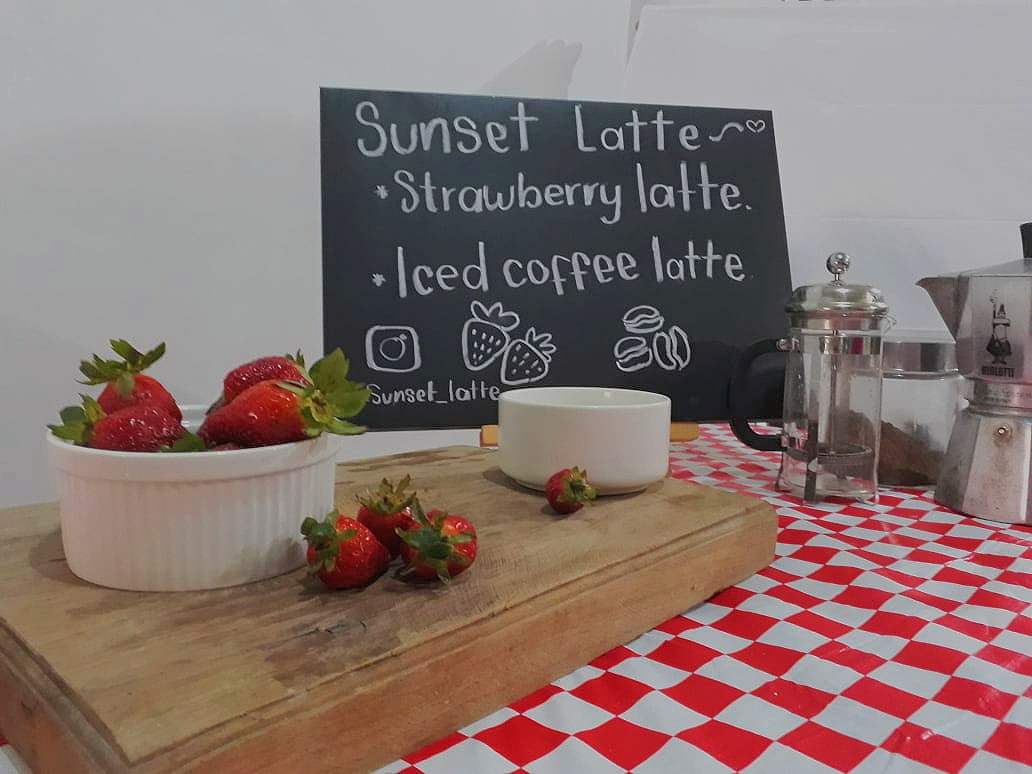 Sunset Latte
*Strawberry latte.
*Iced coffee latte.
Sunset_latte
BIALETTI